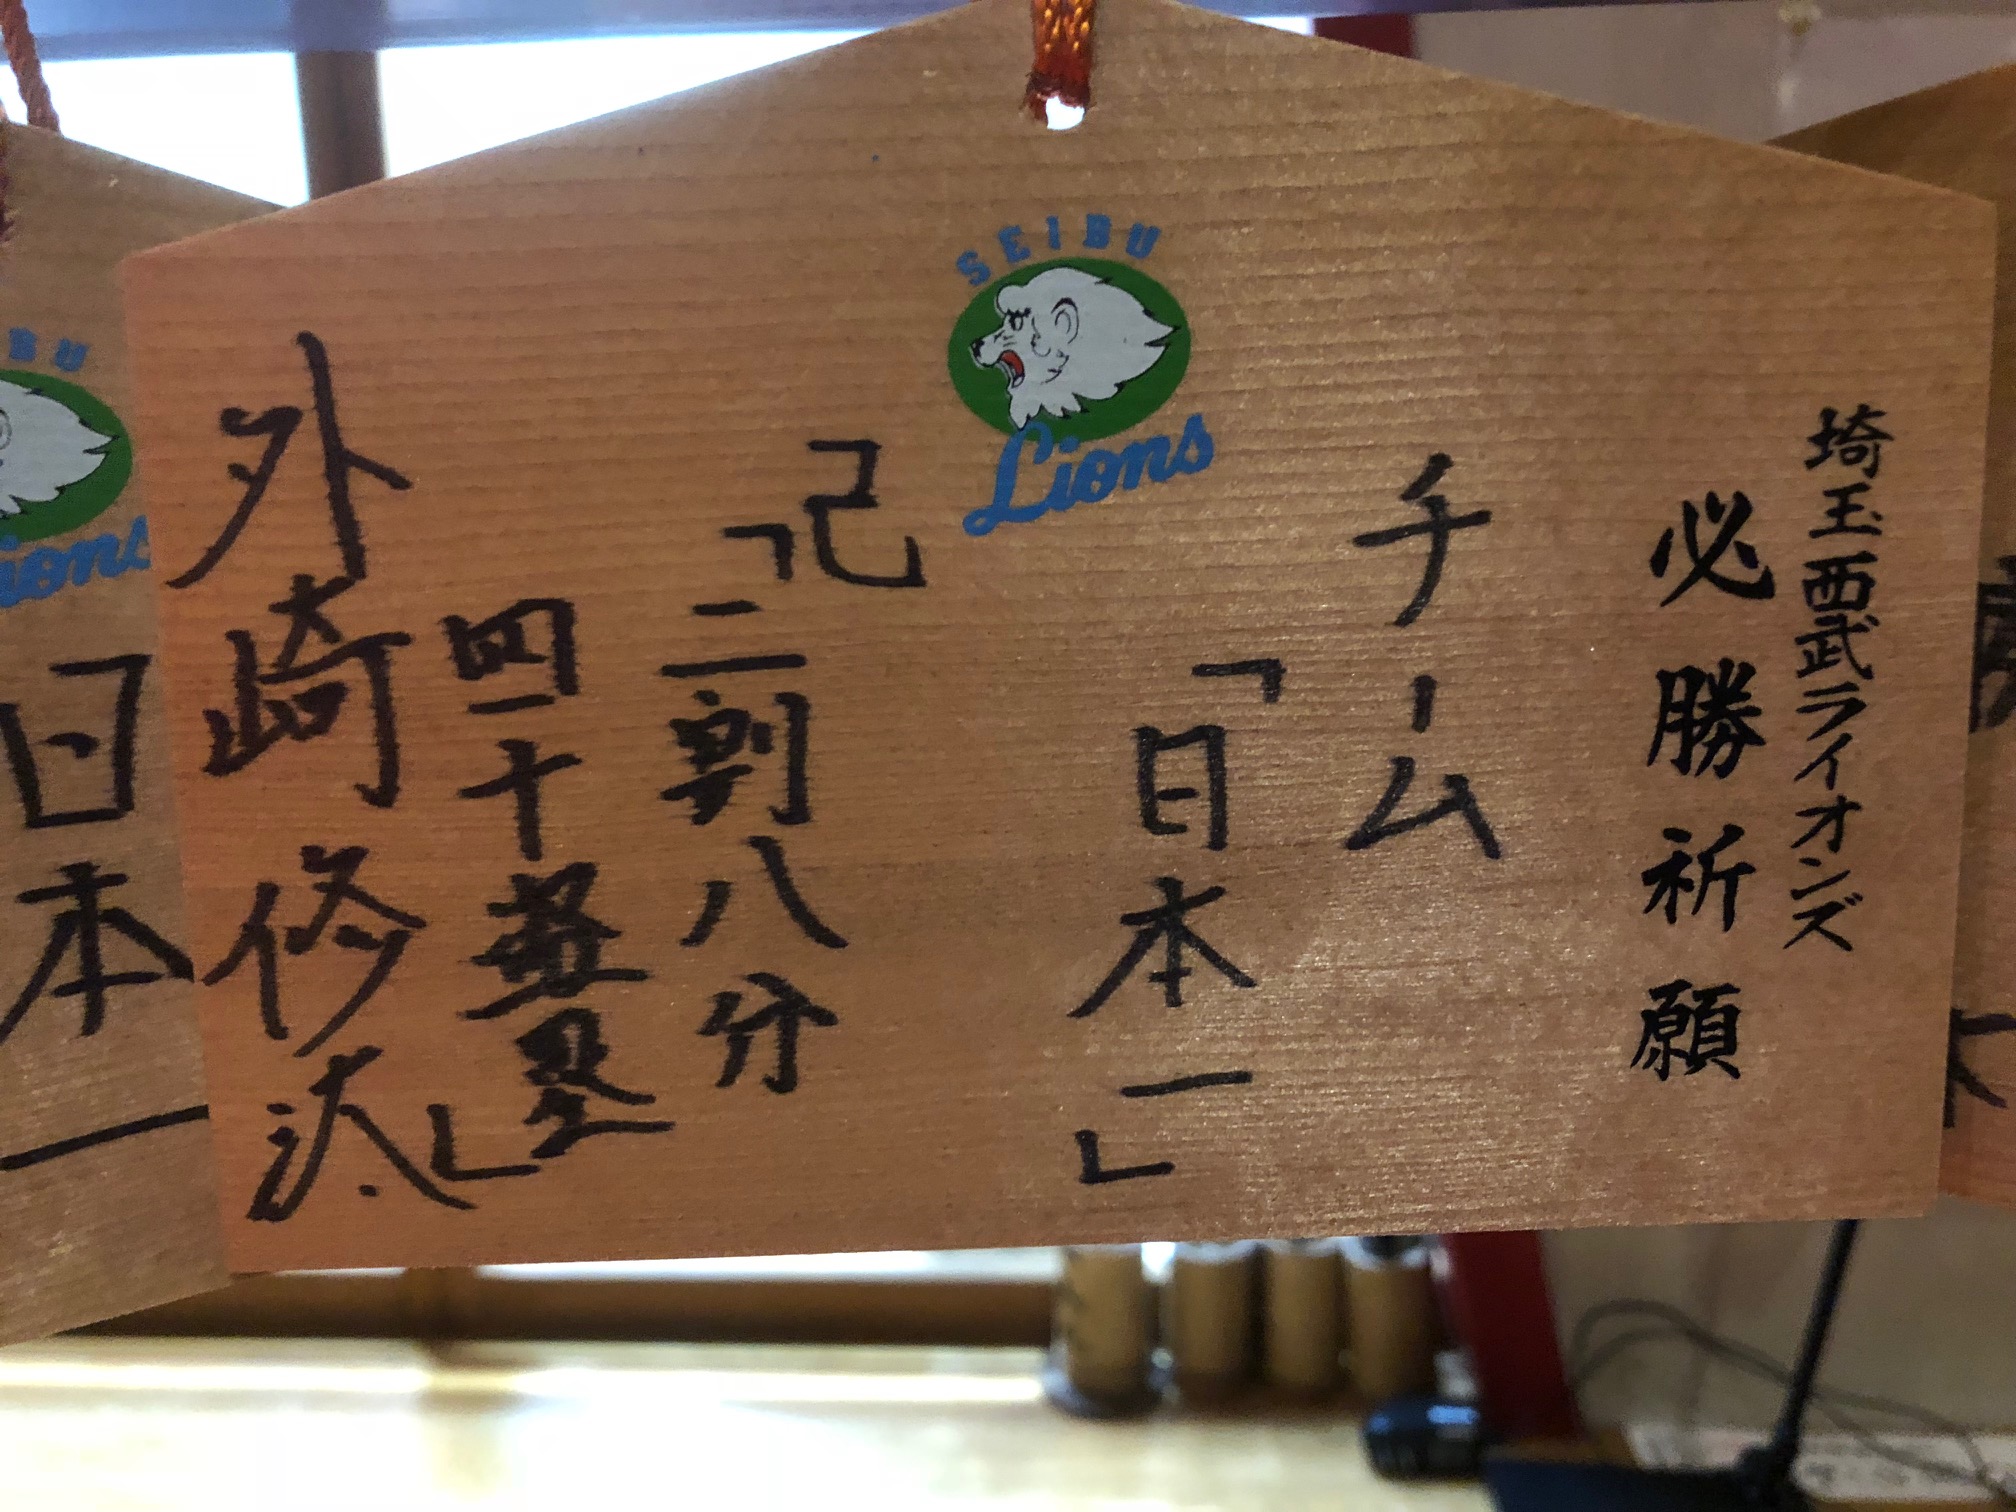 埼玉西武ライオンズ
必勝祈願
SEIBU
Lions
チーム
「日本一」
己
「二割八分
四十盗塁」
外崎修汰
BU
ions
日本一